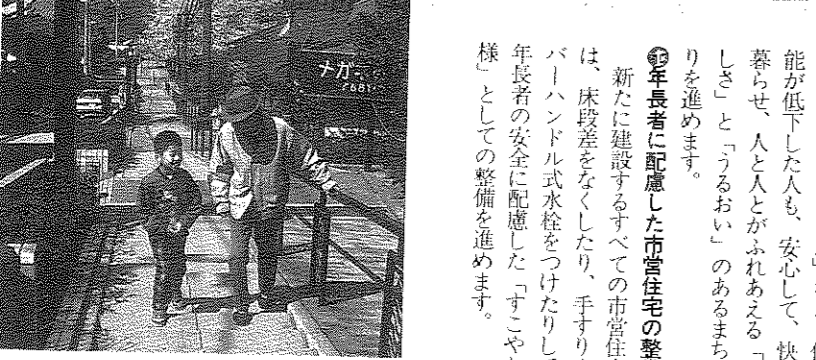 能が低下した人も、安心して、快
暮らせ、人と人とがふれあえる「
しさ」と「うるおい」のあるまち
りを進めます。
年長者に配慮した市営住宅の整
新たに建設するすべての市営住
は、床段差をなくしたり、手すり
バーハンドル式水栓をつけたりし
年長者の安全に配慮した「すこや
様」としての整備を進めます。
ナガ